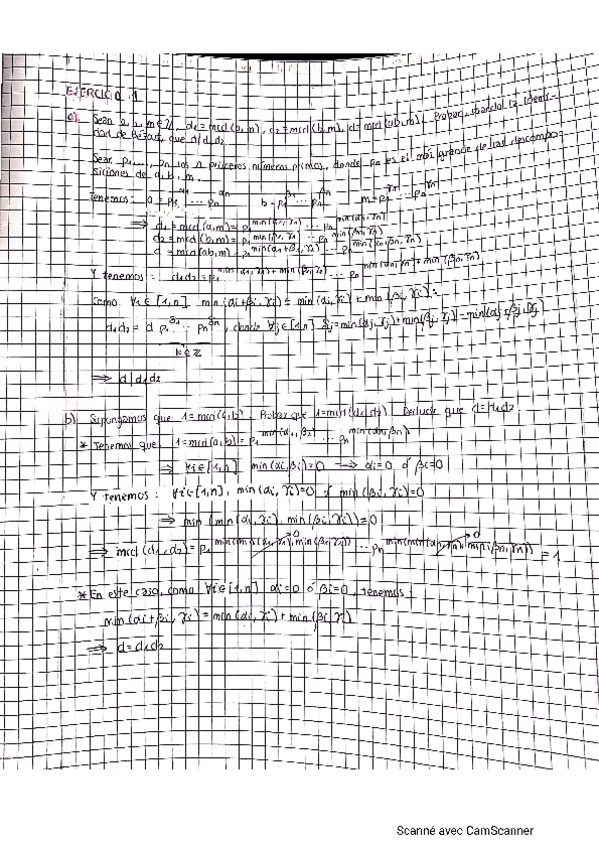 EJERCICIO 1
a). Sean a, b, m ∈ ℤ, d₁ = mcd(a,m), d₂ = mcd(b,m), d = mcd(ab,m). Probar, usando la identi-
dad de Bézout, que d|d₁d₂
Sean p₁..., pₙ los n primeros números primos, donde pₙ es el más grande de las descompo-
siciones de a, b, m.
Tenemos: a = p₁^α₁ ... pₙ^αₙ b = p₁^β₁ ... pₙ^βₙ m = p₁^γ₁ ... pₙ^γₙ
⟹ d₁ = mcd(a,m) = p₁^min(α₁,γ₁) ... pₙ^min(αₙ,γₙ)
d₂ = mcd(b,m) = p₁^min(β₁,γ₁) ... pₙ^min(βₙ,γₙ)
d = mcd(ab,m) = p₁^min(α₁+β₁,γ₁) ... pₙ^min(αₙ+βₙ,γₙ)
Y tenemos: d₁d₂ = p₁^min(α₁,γ₁)+min(β₁,γ₁) ... pₙ^min(αₙ,γₙ)+min(βₙ,γₙ)
Como ∀i∈[1,n] min(αi+βi,γi) ≤ min(αi,γi)+min(βi,γi):
d₁d₂ = d p₁^δ₁ ... pₙ^δₙ, donde ∀j∈[1,n] δj = min(αj,γj)+min(βj,γj)-min(αj+βj,γj)
k∈ℤ
⟹ d|d₁d₂
b) Supongamos que 1 = mcd(a,b). Probar que 1 = mcd(d₁,d₂). Deducir que d = d₁d₂
* Tenemos que 1 = mcd(a,b) = p₁^min(α₁,β₁) ... pₙ^min(αₙ,βₙ)
⟹ ∀i∈[1,n] min(αi,βi)=0 ⟶ αi=0 ó βi=0
Y tenemos: ∀i∈[1,n], min(αi,γi)=0 ó min(βi,γi)=0
⟹ min(min(αi,γi), min(βi,γi))=0
⟹ mcd(d₁,d₂) = p₁^min(min(α₁,γ₁),min(β₁,γ₁)) → 0 ... pₙ^min(min(αₙ,γₙ),min(βₙ,γₙ)) → 0 = 1
* En este caso, como ∀i∈[1,n] αi=0 ó βi=0, tenemos
min(αi+βi,γi) = min(αi,γi)+min(βi,γi)
⟹ d = d₁d₂
Scanné avec CamScanner